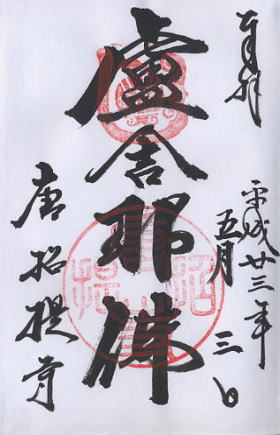 奉拝
平成廿三年
五月三日
盧舎那佛
唐招提寺